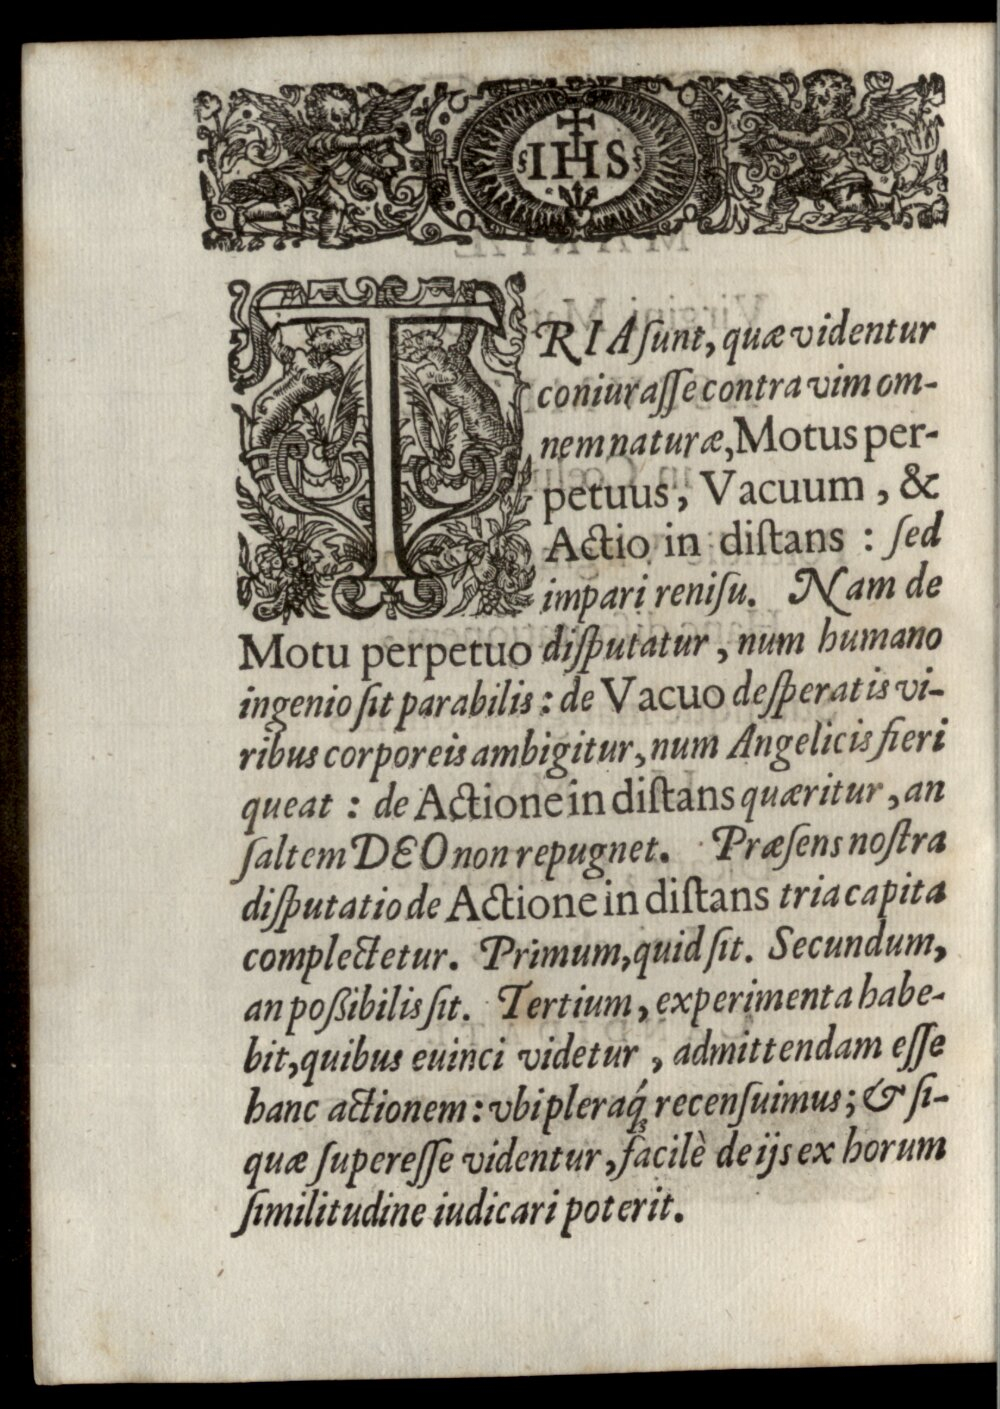 IHS
TRIA ſunt, quæ videntur
coniuraſſe contra vim om-
nem naturæ, Motus per-
petuus, Vacuum, &
Actio in diſtans : ſed
impari reniſu. Nam de
Motu perpetuo diſputatur, num humano
ingenio ſit parabilis: de Vacuo deſperatis vi-
ribus corporeis ambigitur, num Angelicis fieri
queat : de Actione in diſtans quæritur, an
ſaltem DEO non repugnet. Præſens noſtra
diſputatio de Actione in diſtans tria capita
complectetur. Primum, quid ſit. Secundum,
an poßibilis ſit. Tertium, experimenta habe-
bit, quibus euinci videtur, admittendam eſſe
hanc actionem: vbi pleraq́; recenſuimus; & ſi-
quæ ſupereſſe videntur, facilè de ijs ex horum
ſimilitudine iudicari poterit.